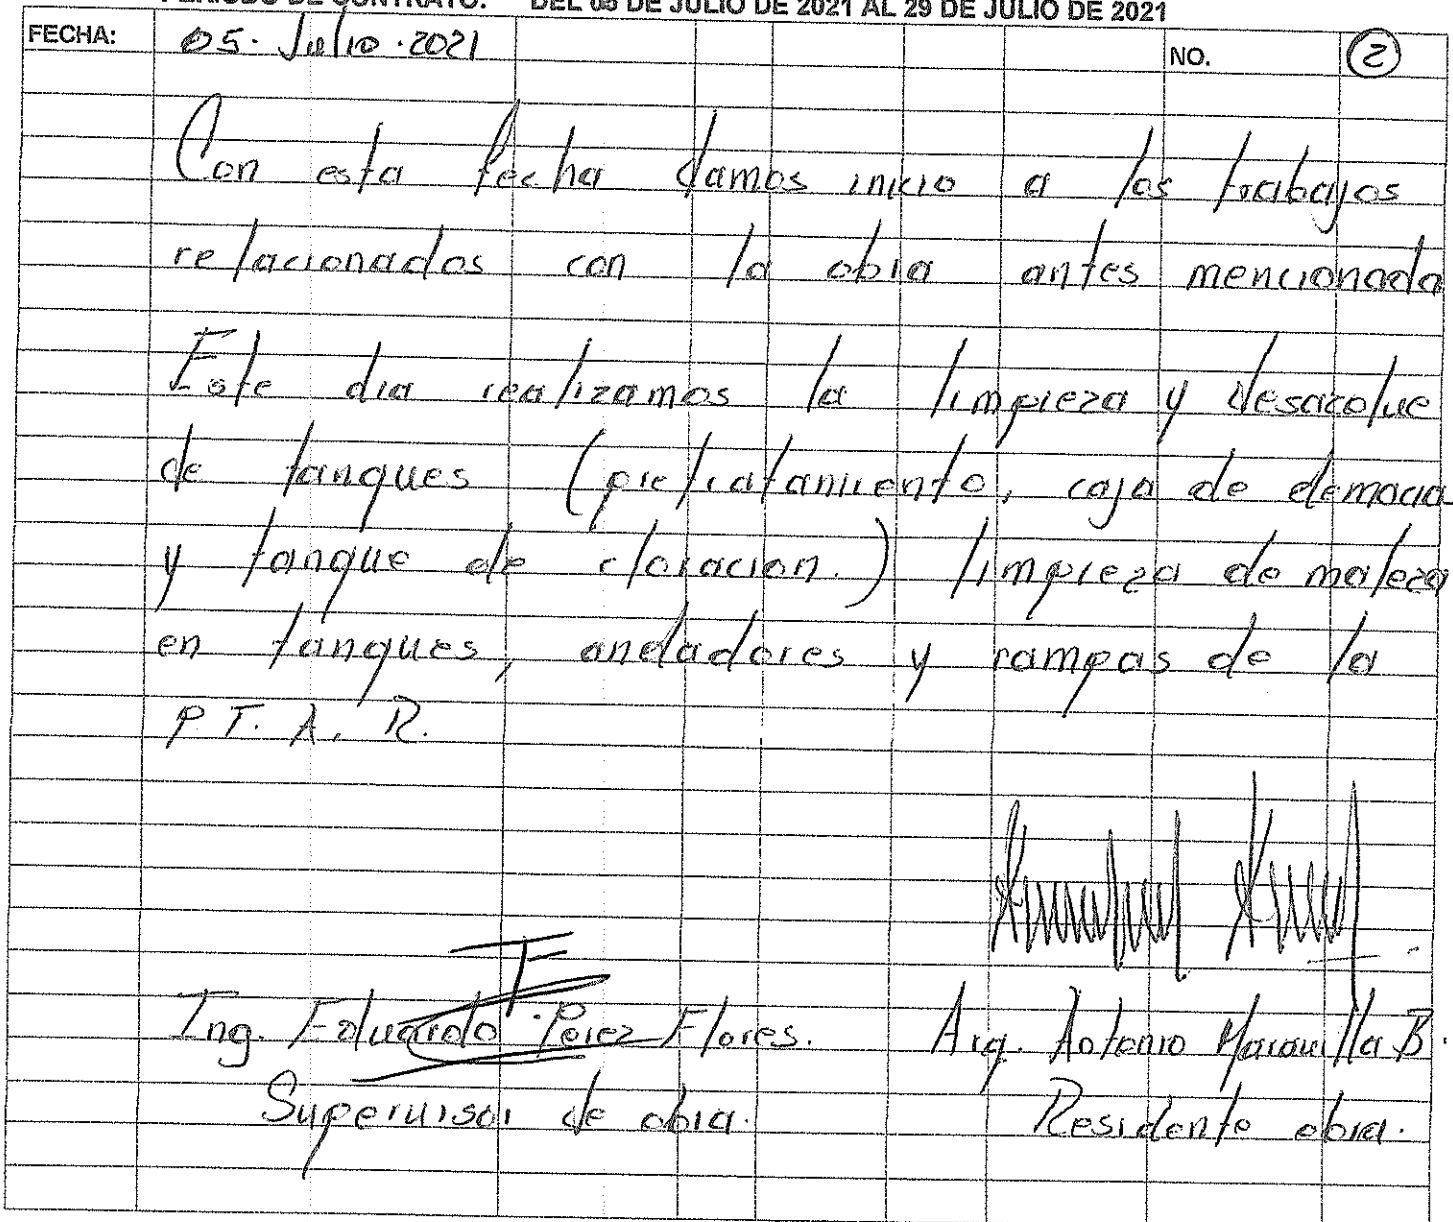 PERIODO DE CONTRATO: DEL 05 DE JULIO DE 2021 AL 29 DE JULIO DE 2021
FECHA: 05. Julio. 2021 NO. 2
Con esta fecha damos inicio a los trabajos
relacionados con la obra antes mencionada
Este dia realizamos la limpieza y desazolve
de tanques (pretratamiento, caja de demacia
y tanque de cloracion.) limpieza de maleza
en tanques, andadores y rampas de la
P.T. A. R.
Ing. Eduardo Perez Flores. Arq. Antonio Maravilla B.
Supervisor de obra. Residente obra.